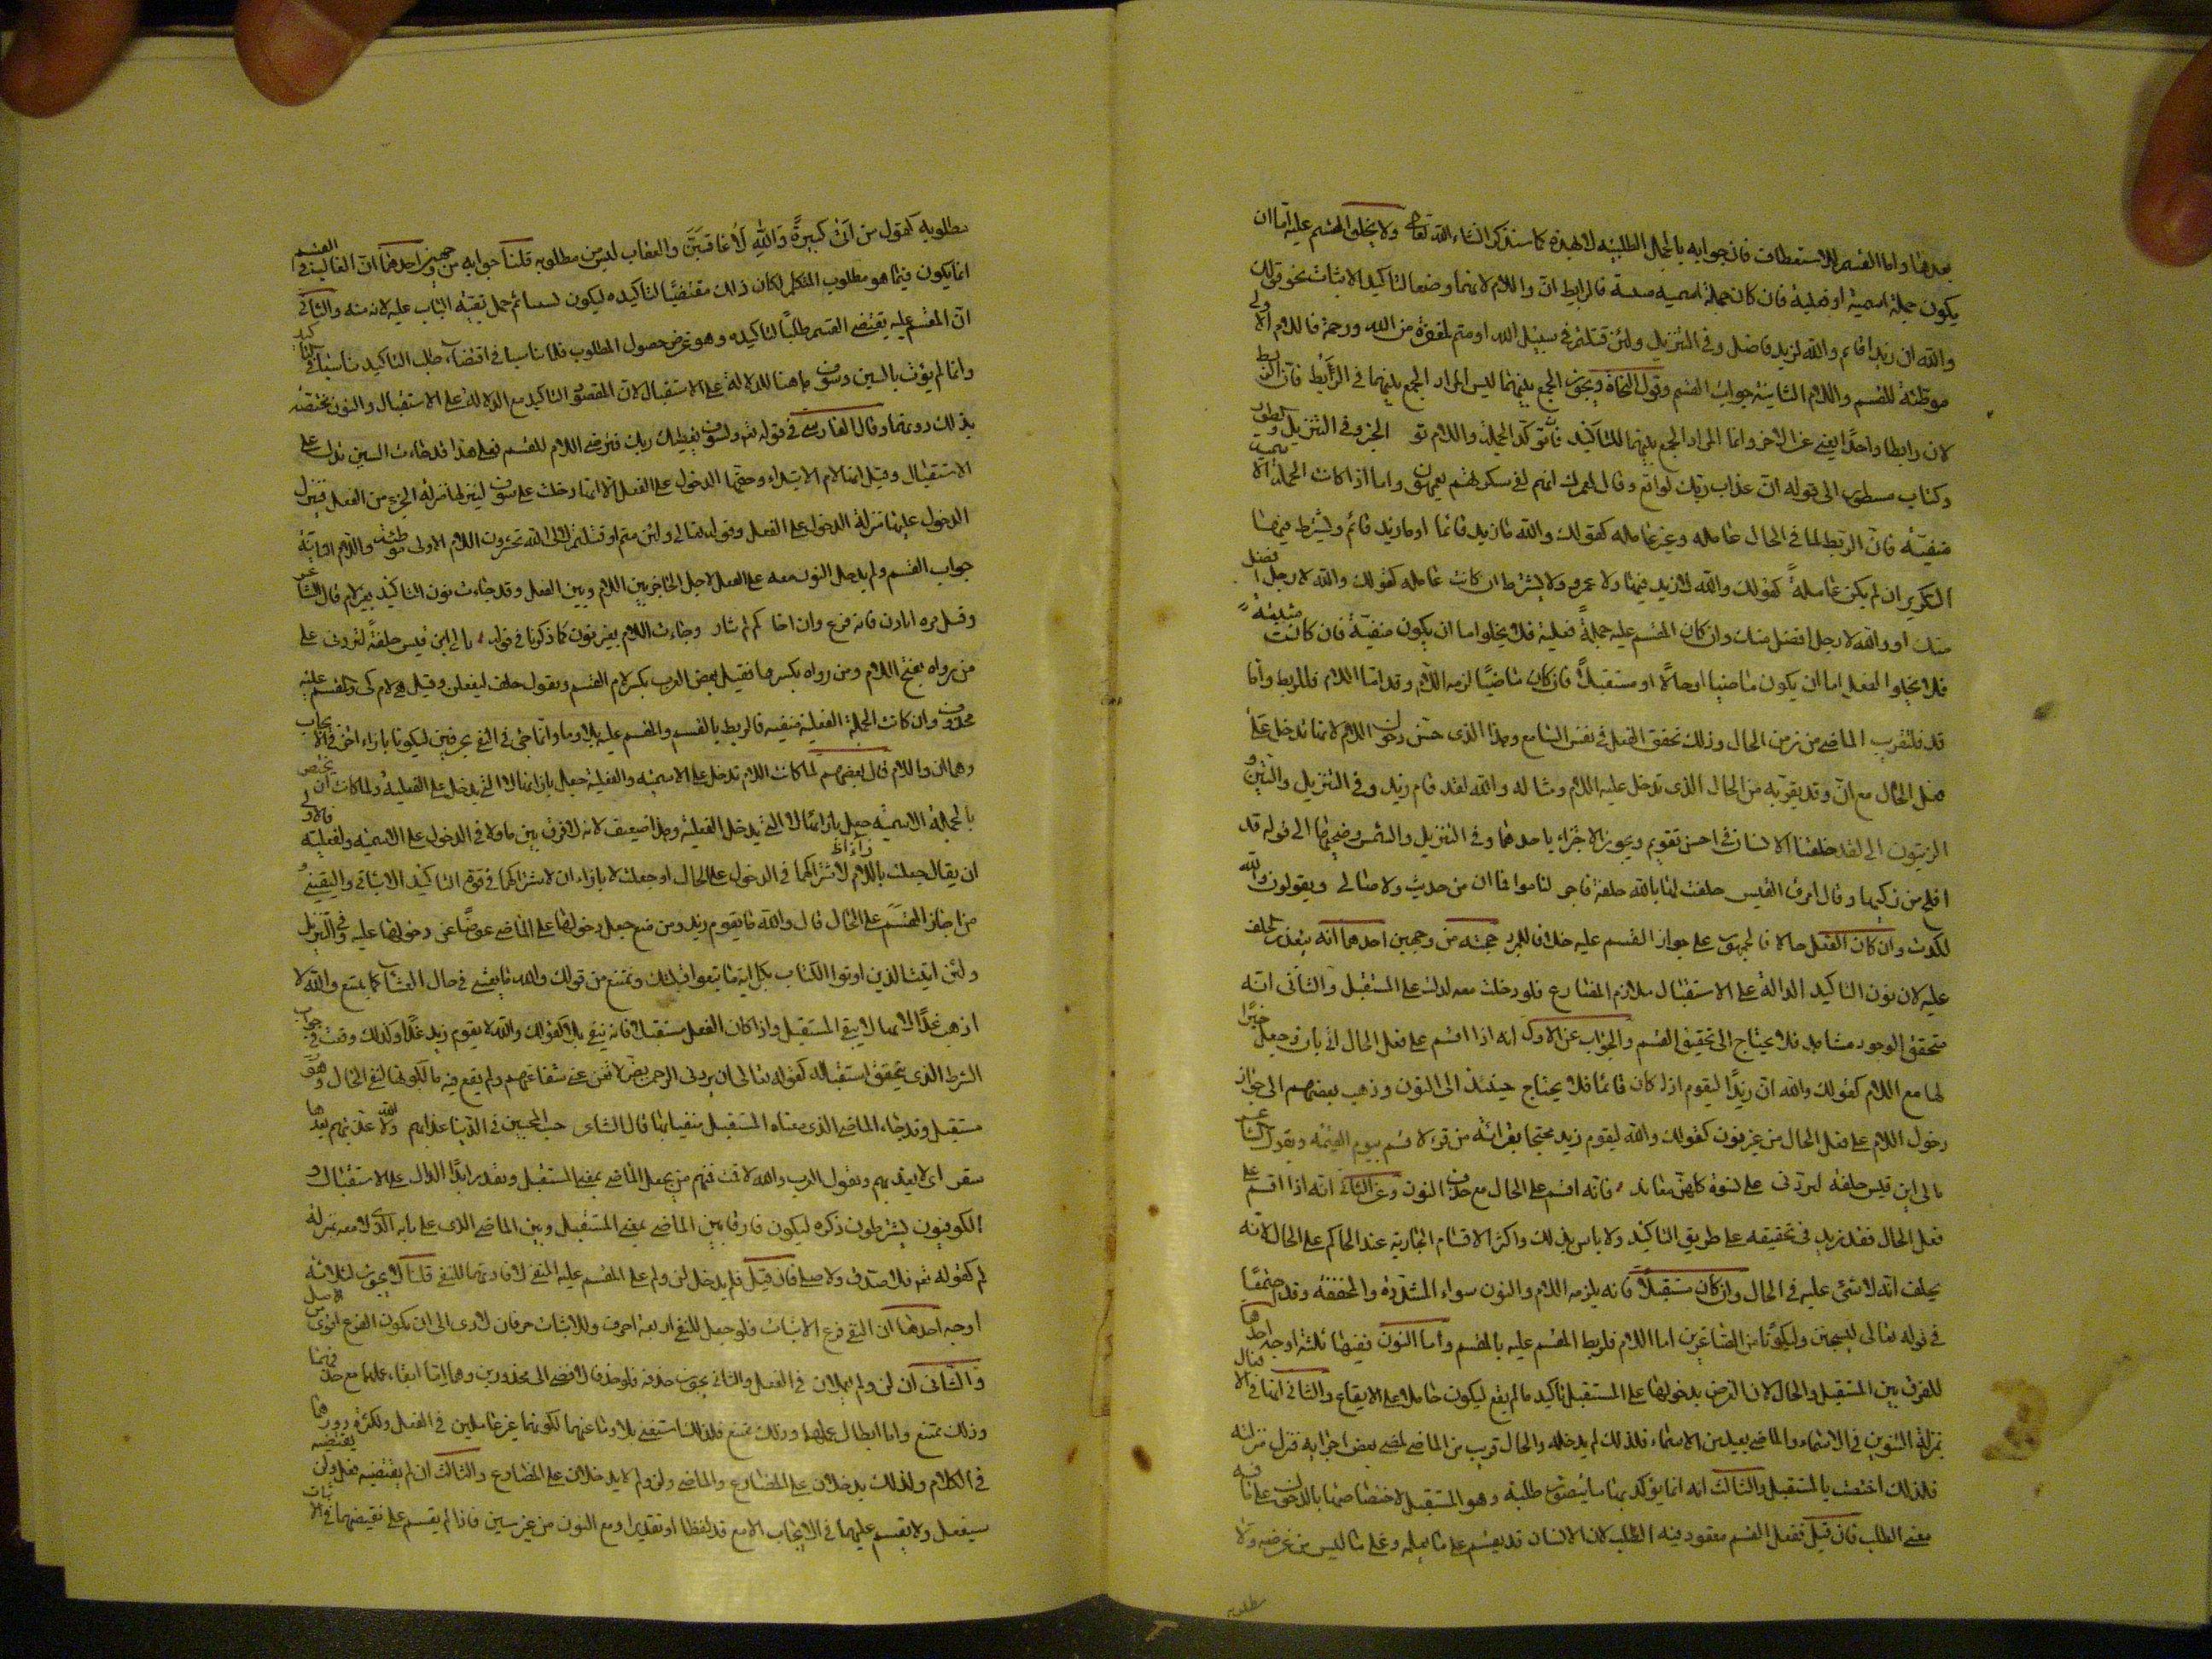 بعدها واما القسم للاستعطاف فان جوابه بالجمل الطلبية لا بهذه كما سنذكر انشاء الله تعالى ولا يخلو المقسم عليه اما ان
يكون جملة اسمية او فعلية فان كان جملة اسمية مثبتة فالرابط ان واللام لانهما وضعا لتاكيد الاثبات نحو قولك
والله ان زيدا قائم والله لزيد فاضل وفي التنزيل ولئن قتلتم في سبيل الله او متم لمغفرة من الله ورحمة فاللام الاولى
موطئة للقسم واللام الثانية جواب القسم وقول النحاة ويجوز الجمع بينهما ليس المراد الجمع بينهما في الرابط فان الربط
لان رابطا واحدا يغني عن الاخر وانما المراد الجمع بينهما للتاكيد فان توكد الجملة واللام تو الجزو في التنزيل والطور
وكتاب مسطور الى قوله ان عذاب ربك لواقع وقال لعمرك انهم لفي سكرتهم يعمهون واما اذا كانت الجملة الاسمية
منفية فان الربط لما في الحال عاملة وغير عاملة كقولك والله ما زيد قائما او ما زيد قائم ويشترط فيها
التكرير ان لم يكن عاملة كقولك والله لا زيد فيها ولا عمرو ولا يشترط ان كانت عاملة كقولك والله لا رجل افضل
منك او والله لا رجل افضل منك وان كان المقسم عليه جملة فعلية فلا يخلو اما ان يكون منفية فان كانت مثبتة
فلا يخلو الفعل اما ان يكون ماضيا او حالا او مستقبلا فان كان ماضيا لزمه اللام وقد اما اللام فللربط واما
قد فلتقريب الماضي من زمن الحال وذلك تحقق الفعل في نفس السامع وهذا الذي حسن دخول اللام لانها تدخل على
فعل الحال مع ان وقد يقربه من الحال الذي تدخل عليه اللام ومثاله والله لقد قام زيد وفي التنزيل والتين و
الزيتون الى لقد خلقنا الانسان في احسن تقويم ويجوز الاجزاء باحدهما وفي التنزيل والشمس وضحيها الى قوله قد
افلح من زكيها وقال امرؤ القيس حلفت لها بالله حلفة فاجر لناموا فما ان من حديث ولا صالي ويقولون والله
لكذب وان كان الفعل حالا فالجمهور على جواز القسم عليه خلافا للمبرد حجته من وجهين احدهما انه يتعذر الحلف
عليه لان نون التاكيد الدالة على الاستقبال ملازم المضارع فلو دخلت معه لدلت على المستقبل والثاني انه
متحقق الوجود مشاهد فلا يحتاج الى تحقيق القسم والجواب عن الاول انه اذا اقسم على فعل الحال اتى بان وجعل خبرا
لها مع اللام كقولك والله ان زيدا ليقوم اذا كان قائما فلا يحتاج حينئذ الى النون وذهب بعضهم الى جواز
دخول اللام على فعل الحال من غير نون كقولك والله ليقوم زيد محتجا بقراءة من قرء لا قسم بيوم القيمة وبقول الشاعر
تالى ابن قيس حلفة ليردني على نسوة كانهن مفائد فانه اقسم على الحال مع حذف النون وعن الثاني انه اذا اقسم على
فعل الحال فقد يزيد في تحقيقه على طريق التاكيد ولا باس بذلك واكثر الاقسام الجارية عند الحاكم على الحال لانه
يحلف انه لا شئ عليه في الحال وان كان مستقبلا فانه يلزمه اللام والنون سواء المشددة والمخففة وقد جمعتا
في قوله تعالى ليسجنن وليكونا من الصاغرين اما اللام فلربط المقسم عليه بالقسم واما النون ففيها ثلثة اوجه احدها
للفرق بين المستقبل والحال لان الغرض بدخولها على المستقبل تاكيد ما لم يقع ليكون حاملا على الايقاع والثاني انها في الافعال
بمنزلة التنوين في الاسماء والماضي بعيد من الاسماء فلذلك لم يدخله والحال قريب من الماضي لمضي بعض اجزائه فنزل منزلته
فلذلك اختصت بالمستقبل والثالث انه انما يؤكد بها ما يتصور طلبه وهو المستقبل لاختصاصها بالدخول على ما فيه
معنى الطلب فان قيل ففعل القسم مفقود فيه الطلب لان الانسان قد يقسم على ما يعلمه وعلى ما ليس من غرضه ولا
مطلوبه
مطلوبه كقول من اتى كبيرة والله لأعاقبن والعقاب ليس من مطلوبه قلنا جوابه من وجهين احدهما ان الغالب في القسم
انما يكون فيما هو مطلوب المتكلم لكان ذلك مقتضيا لتاكيده ليكون حمل بقية الباب عليه لانه منه والثاني
ان المقسم عليه يقتضي القسم طلبا لتاكيده وهو غرض حصول المطلوب فلما تناسبا في اقتضاء طلب التاكيد تناسبا في التاكيد
وانما لم يؤت بالسين وسوف ههنا للدلالة على الاستقبال لان المقصود التاكيد مع الدلالة على الاستقبال والنون مختصة
بذلك دونهما وقال الفارسي في قوله تعالى ولسوف يعطيك ربك فترضى اللام للقسم فعلى هذا قد جاءت السين تدل على
الاستقبال وقيل انها لام الابتداء وحقها الدخول على الفعل الا انها دخلت على سوف لتنزلها منزلة الجزء من الفعل فتنزل
الدخول عليها منزلة الدخول على الفعل وقوله تعالى ولئن متم او قتلتم لالى الله تحشرون اللام الاولى موطئة واللام الثانية
جواب القسم ولم يدخل النون معه على الفعل لاجل الحاجز بين اللام وبين الفعل وقد جاءت نون التاكيد بغير لام قال الشاعر
وقتيل مرة اثارن فانه فرغ وان اخاكم لم يثار وجاءت اللام بغير نون كما ذكرنا في قوله تالى ابن قيس حلفة ليردني على
من رواه بفتح اللام ومن رواه بكسرها فقيل بعض العرب بكسر لام القسم ويقول حلف ليفعلن وقيل هي لام كي والمقسم عليه
محذوف وان كانت الجملة الفعلية منفية فالربط بالقسم والمقسم عليه بلا وما وانما جئ في النفي بحرفين ليكونا بازاء اختي الايجاب
وهما ان واللام قال بعضهم لما كانت اللام تدخل على الاسمية والفعلية جعل بازائها لا التي يدخل على الفعلية ولما كانت ان تختص
بالجملة الاسمية جعل بازائها لا التي يدخل الفعلية وهذا ضعيف لانه لا فرق بين ما ولا في الدخول على الاسمية والفعلية فالاولى
ان يقال جعلت بازاء اللام لاشتراكهما في الدخول على الحال او جعلت لا بازاء ان لاشتراكهما في قوة التاكيد الاثباتي واليقيني و
من اجاز القسم على الحال قال والله ما يقوم زيد ومن منع جعل دخولها على الماضي عوضا عن دخولها عليه وفي التنزيل
ولئن اتيت الذين اوتوا الكتاب بكل اية ما تبعوا قبلتك وتمتنع من قولك والله ما يمشي في حال المشي كما يمتنع والله لا
اذهب غدا لانها لا ينفي المستقبل واذا كان الفعل مستقبلا فانه ينفي بلا كقولك والله لا يقوم زيد غدا وكذلك وقعت في جواب
الشرط الذي يتحقق استقباله كقوله تعالى ان يردني الرحمن بضر لا تغن عني شفاعتهم ولم يقع فيه ما لكونها لنفي الحال وهو
مستقبل وقد جاء الماضي الذي معناه المستقبل منفيا بها قال الشاعر حسب المحبين في الدنيا عذابهم والله لا عذبتهم بعدها
سقر اى لا يعذبهم ويقول العرب والله لا قمت فمنهم من يجعل الماضي بمعنى المستقبل ويقدر ابدا الدال على الاستقبال و
الكوفيون يشترطون ذكره ليكون فارقا بين الماضي بمعنى المستقبل وبين الماضي الذي على بابه اذ لا معه بمنزلة
لم كقوله تعالى فلا صدق ولا صلى فان قيل فلم يدخل لن ولم على المقسم عليه المنفي لافادتهما للنفي قلنا لا يجوز لثلاثة
اوجه احدها ان النفي فرع الاثبات فلو جعل للنفي اربعة احرف وللاثبات حرفان لادى الى ان يكون الفرع اقوى من الاصل
والثاني ان لن ولم يعملان في الفعل والثاني يجوز حذفه فلو حذفا لافضى الى محذورين وهما اما ابقاء عملهما مع حذفهما
وذلك ممتنع واما ابطال عملهما وذلك ممتنع فلذلك استغني بلا وما عنهما لكونهما غير عاملين في الفعل ولكثرة دورهما
في الكلام ولذلك يدخلان على المضارع والماضي ولن ولم لا يدخلان على المضارع والثالث ان لم يقتضيه فعل ولن يقتضيه
سيفعل ولا يقسم عليهما في الايجاب الا مع قد لفظا او تقديرا ومع النون من غير سين فاذا لم يقسم على نقيضهما في الاثبات